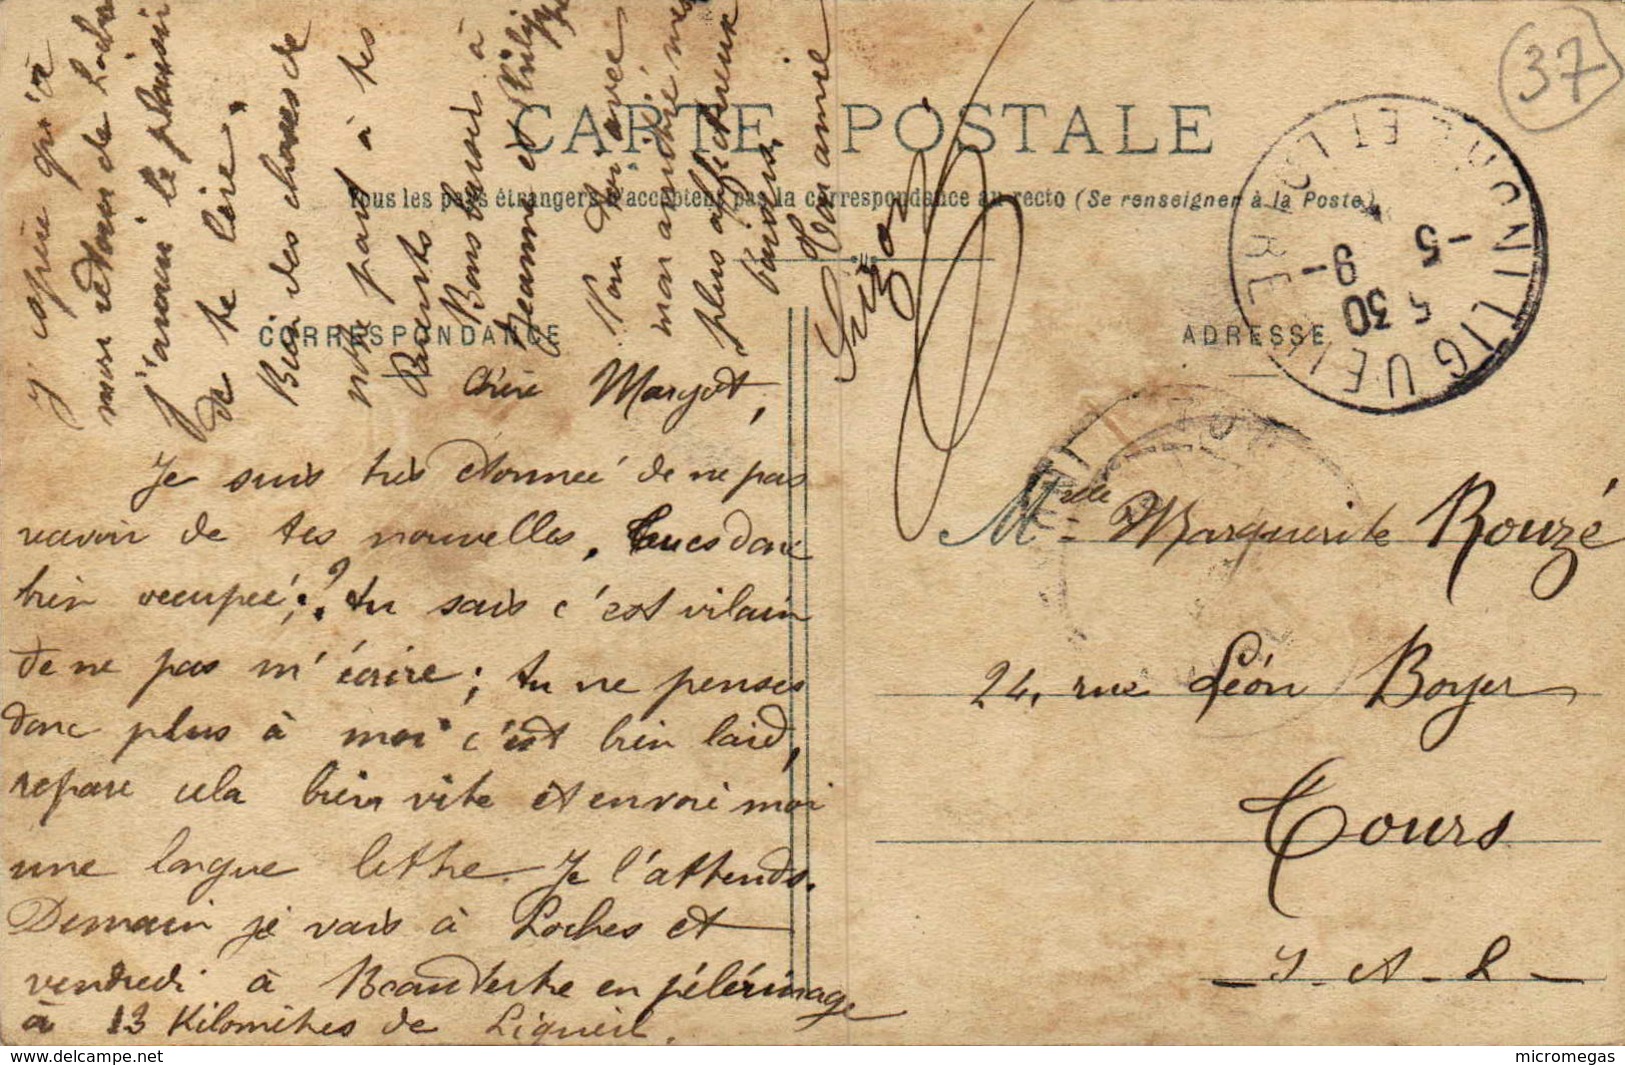 CARTE POSTALE
Tous les pays étrangers n'acceptent pas la correspondance au recto (Se renseigner à la Poste)
CORRESPONDANCE
ADRESSE
37
Chère Margot,
Je suis très étonnée de ne pas
recevoir de tes nouvelles. tu es donc
bien occupée; ? tu sais c'est vilain
de ne pas m'écrire; tu ne penses
donc plus à moi c'est bien laid,
repare cela bien vite et envoi moi
une longue lettre. Je l'attends.
Demain je vais à Loches et
vendredi à Beautertre en pélérinage
à 13 Kilomètres de Ligueil.
J'espère qu'à
mon retour de Loches
j'aurai le plaisir
de te lire.
Bien des choses de
notre part à tes
Parents
Bons baisers à
Jeanne et
Pour toi avec
mon amitié mes
plus affectueux
baisers.
Ton amie
Suzon
Melle Marguerite Rouzé
24, rue Léon Boyer
Tours
I. et L.
LIGUEIL
INDRE ET LOIRE
5 30
5 - 9 -
delcampe.net
micromegas